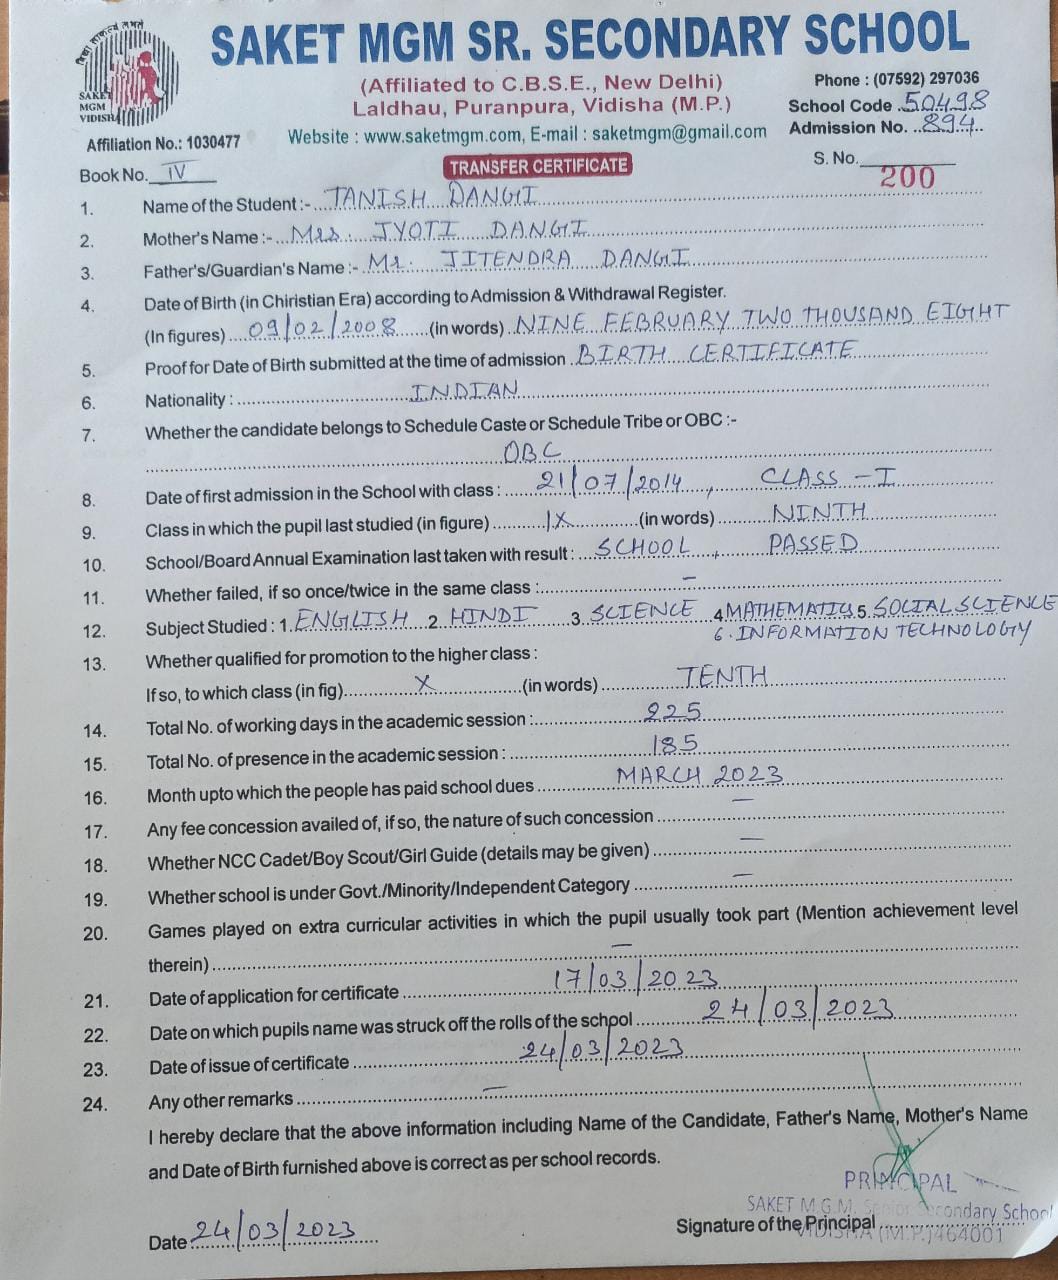 SAKET MGM SR. SECONDARY SCHOOL
(Affiliated to C.B.S.E., New Delhi)
Laldhau, Puranpura, Vidisha (M.P.)
Website : www.saketmgm.com, E-mail : saketmgm@gmail.com
SAKET
MGM
VIDISHA
Phone : (07592) 297036
School Code 50498
Admission No. 894
Affiliation No.: 1030477
Book No. IV
TRANSFER CERTIFICATE
S. No. 200
1. Name of the Student :- TANISH DANGI
2. Mother's Name :- Mrs. JYOTI DANGI
3. Father's/Guardian's Name :- Mr. JITENDRA DANGI
4. Date of Birth (in Chiristian Era) according to Admission & Withdrawal Register.
(In figures) 09/02/2008 (in words) NINE FEBRUARY TWO THOUSAND EIGHT
5. Proof for Date of Birth submitted at the time of admission BIRTH CERTIFICATE
6. Nationality : INDIAN
7. Whether the candidate belongs to Schedule Caste or Schedule Tribe or OBC :-
OBC
8. Date of first admission in the School with class : 21/07/2014, CLASS - I
9. Class in which the pupil last studied (in figure) IX (in words) NINTH
10. School/Board Annual Examination last taken with result : SCHOOL, PASSED
11. Whether failed, if so once/twice in the same class : –
12. Subject Studied : 1. ENGLISH 2. HINDI 3. SCIENCE 4 MATHEMATICS 5. SOCIAL SCIENCE
6. INFORMATION TECHNOLOGY
13. Whether qualified for promotion to the higher class :
If so, to which class (in fig) X (in words) TENTH
14. Total No. of working days in the academic session : 225
15. Total No. of presence in the academic session : 185
16. Month upto which the people has paid school dues MARCH 2023
17. Any fee concession availed of, if so, the nature of such concession –
18. Whether NCC Cadet/Boy Scout/Girl Guide (details may be given) –
19. Whether school is under Govt./Minority/Independent Category –
20. Games played on extra curricular activities in which the pupil usually took part (Mention achievement level
therein) –
21. Date of application for certificate 17/03/2023
22. Date on which pupils name was struck off the rolls of the school 24/03/2023
23. Date of issue of certificate 24/03/2023
24. Any other remarks –
I hereby declare that the above information including Name of the Candidate, Father's Name, Mother's Name
and Date of Birth furnished above is correct as per school records.
PRINCIPAL
SAKET M.G.M. Senior Secondary School
VIDISHA (M.P.) 464001
Date 24/03/2023
Signature of the Principal